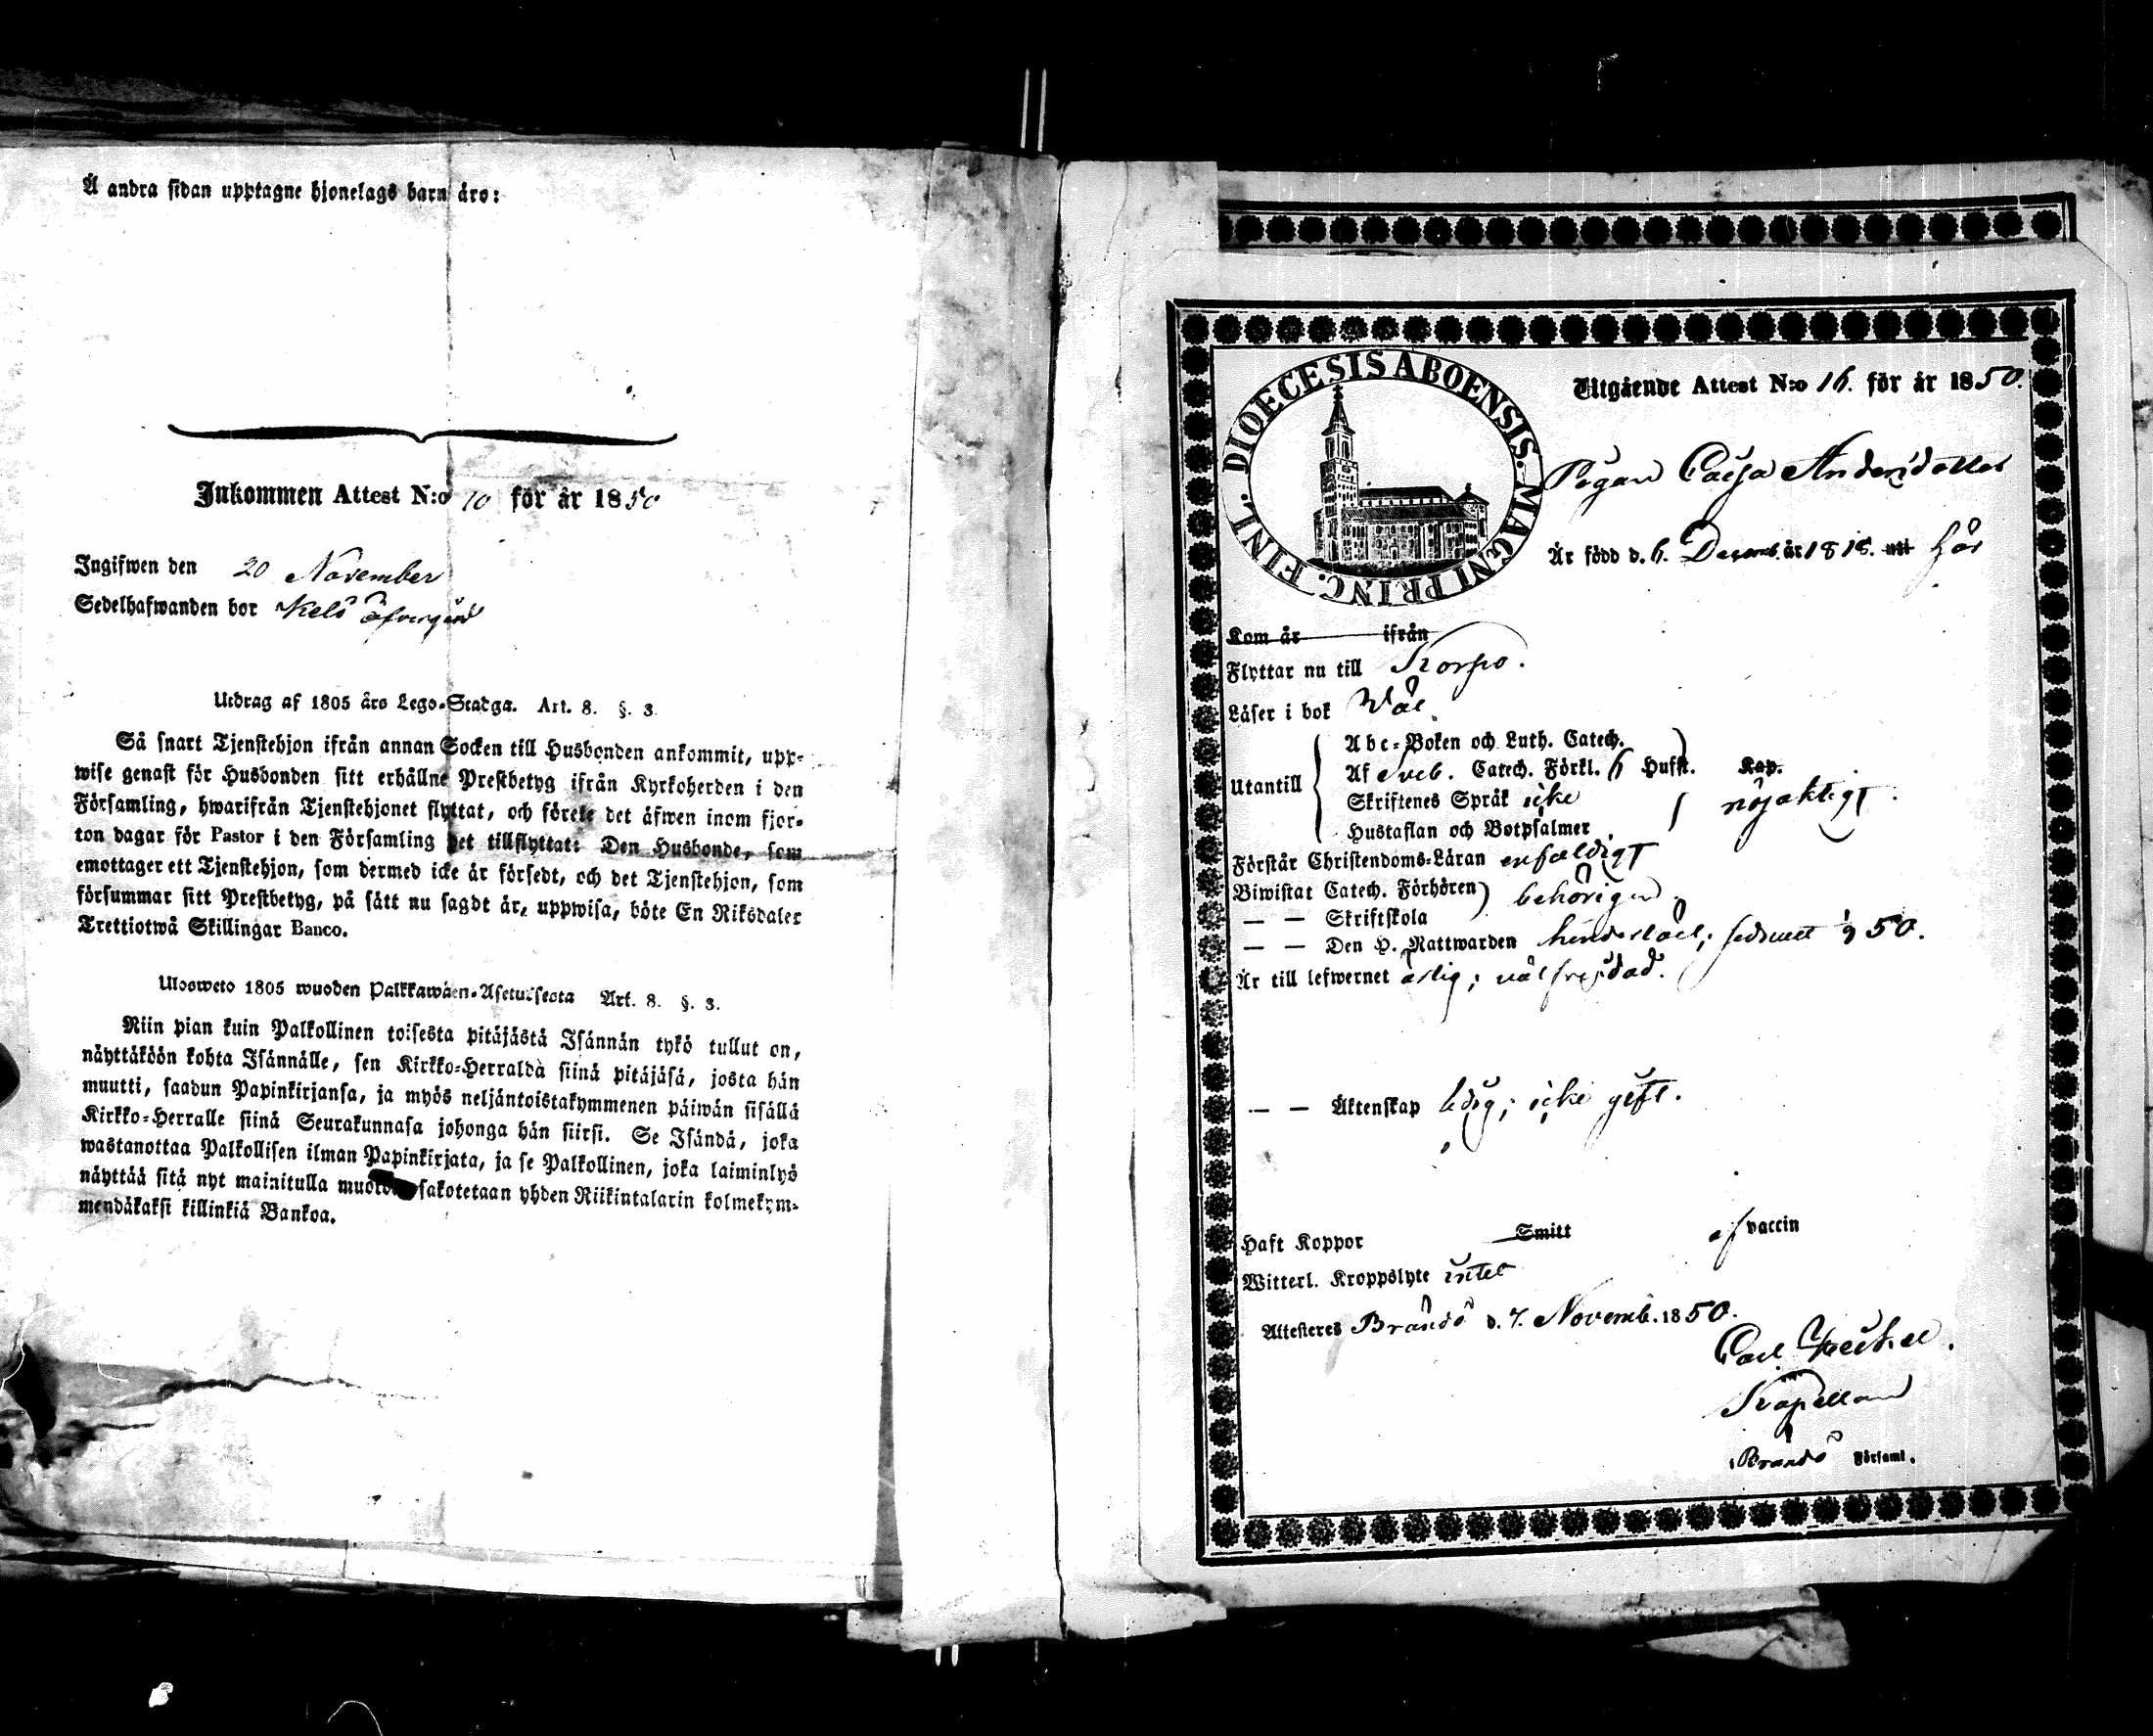 Å andra sidan upptagne hjonelags barn äro:
Inkommen Attest N:o 10 för år 1850
Ingifwen den 20 November
Sedelhafwanden bor Kelö öfvergård
Utdrag af 1805 års Lego-Stadga. Art. 8. §. 3.
Så snart Tjenstehjon ifrån annan Socken till Husbonden ankommit, upp-
wise genast för Husbonden sitt erhållne Prestbetyg ifrån Kyrkoherden i den
Församling, hwarifrån Tjenstehjonet flyttat, och förete det äfwen inom fjor-
ton dagar för Pastor i den Församling det tillflyttat: Den Husbonde, som
emottager ett Tjenstehjon, som dermed icke är försedt, och det Tjenstehjon, som
försummar sitt Prestbetyg, på sätt nu sagdt är, uppwisa, böte En Riksdaler
Trettiotwå Skillingar Banco.
Ulosweto 1805 wuoden Palkkawäen-Asetuksesta Art. 8. §. 3.
Niin pian kuin Palkollinen toisesta pitäjästä Isännän tykö tullut on,
näyttäköön kohta Isännälle, sen Kirkko-Herralda siinä pitäjäsä, josta hän
muutti, saadun Papinkirjansa, ja myös neljäntoistakymmenen päiwän sisällä
Kirkko-Herralle siinä Seurakunnasa johonga hän siirsi. Se Isändä, joka
wastanottaa Palkollisen ilman Papinkirjata, ja se Palkollinen, joka laiminlyö
näyttää sitä nyt mainitulla sakotetaan yhden Riikintalarin kolmekym-
mendäkaksi killinkiä Bankoa.
DIOECESIS ABOENSIS. MAGNI PRINC. FINL.
Utgående Attest N:o 16. för år 1850.
Pigan Cajsa Andersdotter
Är född d. 6. Decemb. år 1818. uti här
Kom år ifrån
Flyttar nu till Korpo.
Läser i bok Väl
Abc-Boken och Luth. Catech.
Utantill Af Sveb. Catech. Förkl. 6 Hufst. Kap.
Skriftenes Språk icke nöjaktigt.
Hustaflan och Botpsalmer
Förstår Christendoms-Läran enfaldigt
Biwistat Catech. Förhören behörigen.
— — Skriftskola
— — Den H. Nattwarden 50.
Är till lefwernet ärlig; välfrejdad.
— — Äktenskap ledig; icke gift.
Haft Koppor Smitt af vaccin
Witterl. Kroppslyte intet
Attesteres Brändö d. 7. Novemb. 1850.
Carl
Kapellan
i Brändö Församl.